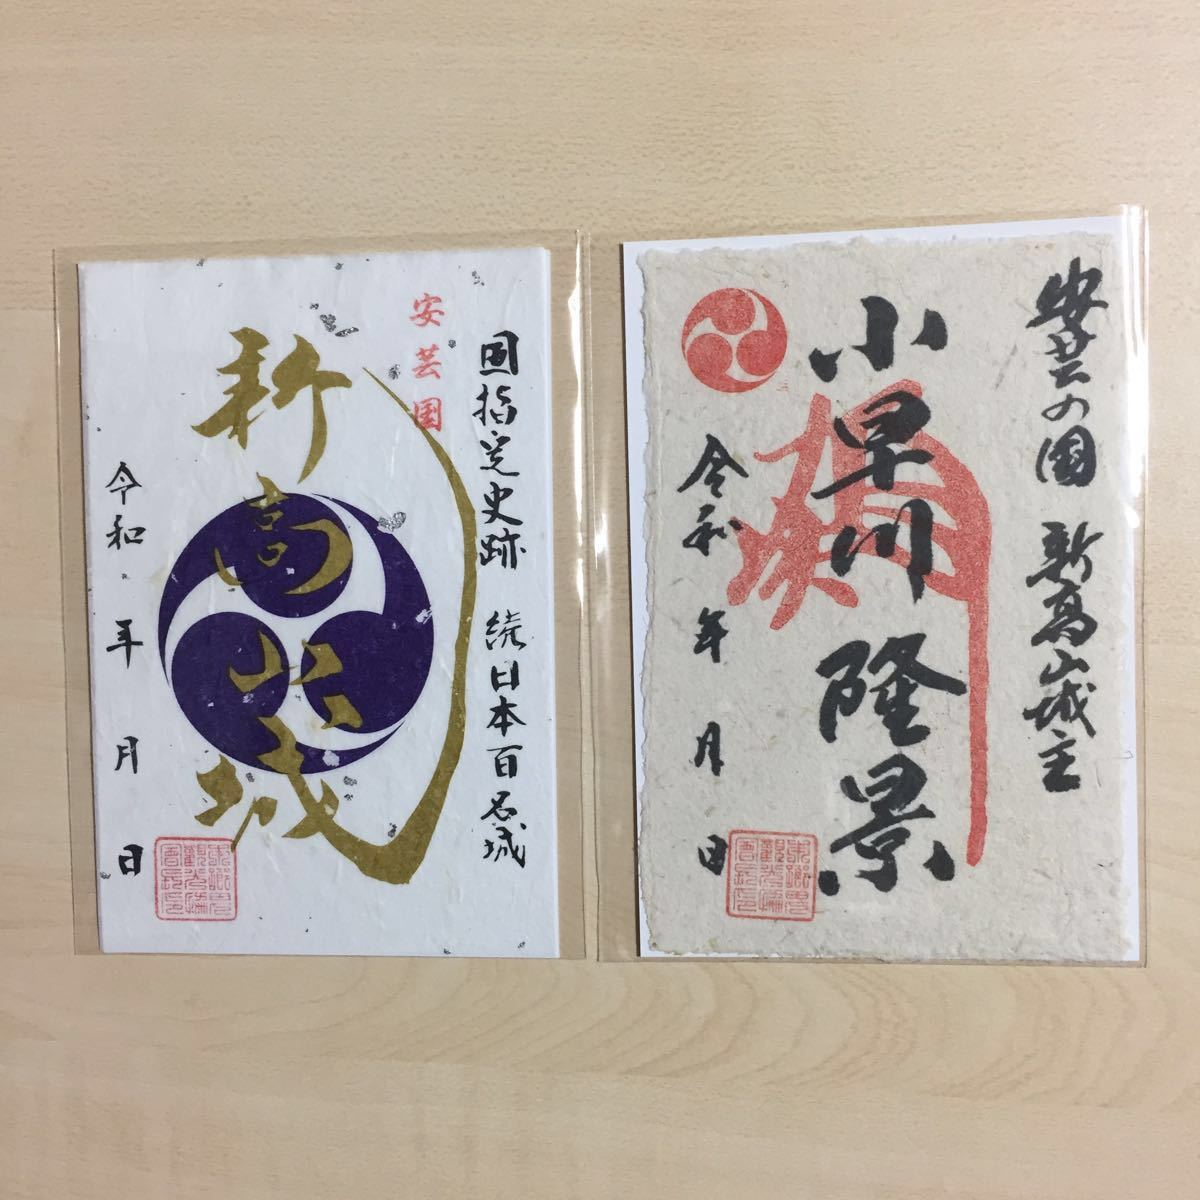 国指定史跡 続日本百名城
安芸国
新高山城
令和 年 月 日
安芸の国 新高山城主
小早川隆景
令和 年 月 日